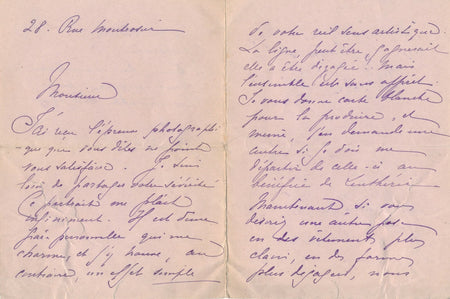 28. Rue Montrosier
Monsieur
J'ai reçu l'épreuve photographi-
que que vous dites ne point
vous satisfaire. Je suis
loin de partager votre sévérité
Ce portrait me plait
infiniment. Il est d'une
personnelle qui me
charme, et j'y trouve, au
contraire, un effet simple
de votre réel sens artistique.
La ligne, peut être, gagnerait
elle à être dégagée. Mais
l'ensemble est sans apprêt.
Je vous donne carte blanche
pour la produire, et
même, j'en demande une
autre si je dois me
départir de celle-ci au
bénéfice de
Maintenant si vous
désirez une autre pose
en des vêtements plus
clairs, en des formes
plus dégagées, nous